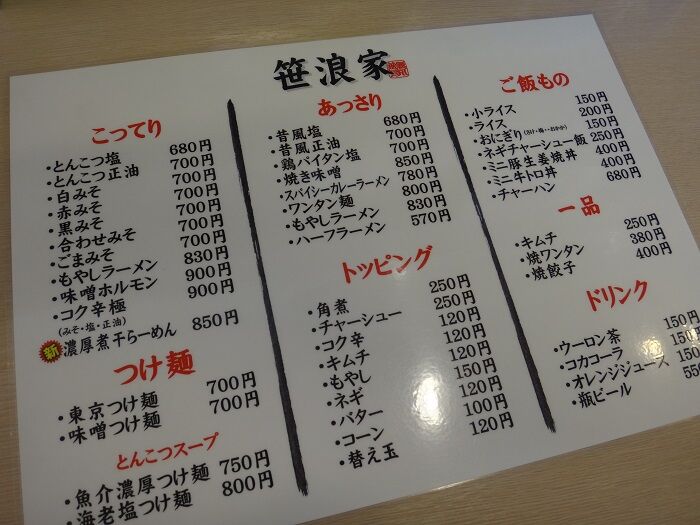 笹浪家
こってり
・とんこつ塩 680円
・とんこつ正油 700円
・白みそ 700円
・赤みそ 700円
・黒みそ 700円
・合わせみそ 700円
・ごまみそ 700円
・もやしラーメン 830円
・味噌ホルモン 900円
・コク辛極 900円
(みそ・塩・正油)
新 濃厚煮干らーめん 850円
つけ麺
・東京つけ麺 700円
・味噌つけ麺 700円
とんこつスープ
・魚介濃厚つけ麺 750円
・海老塩つけ麺 800円
あっさり
・昔風塩 680円
・昔風正油 700円
・鶏パイタン塩 700円
・焼き味噌 850円
・スパイシーカレーラーメン 780円
・ワンタン麺 800円
・もやしラーメン 830円
・ハーフラーメン 570円
トッピング
・角煮 250円
・チャーシュー 250円
・コク辛 120円
・キムチ 120円
・もやし 120円
・ネギ 150円
・バター 120円
・コーン 100円
・替え玉 120円
ご飯もの
・小ライス 150円
・ライス 200円
・おにぎり 150円
・ネギチャーシュー飯 250円
・ミニ豚生姜焼丼 400円
・ミニ牛トロ丼 400円
・チャーハン 680円
一品
・キムチ 250円
・焼ワンタン 380円
・焼餃子 400円
ドリンク
・ウーロン茶 150円
・コカコーラ 150円
・オレンジジュース 150
・瓶ビール 550